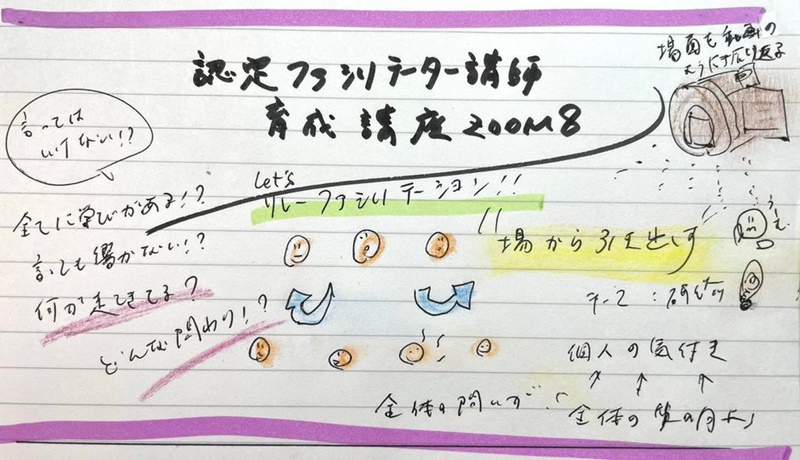 認定ファシリテーター講師
育成講座ZOOM8
場面を動画の
ように
言っては
いけない!?
Let's
リレーファシリテーション!!
全てに学びがある!?
言っても響かない!?
何が起きてる?
どんな関わり!?
場から引き出す
テーマ:研修
個人の気付き
全体の問いが
全体の質の向上